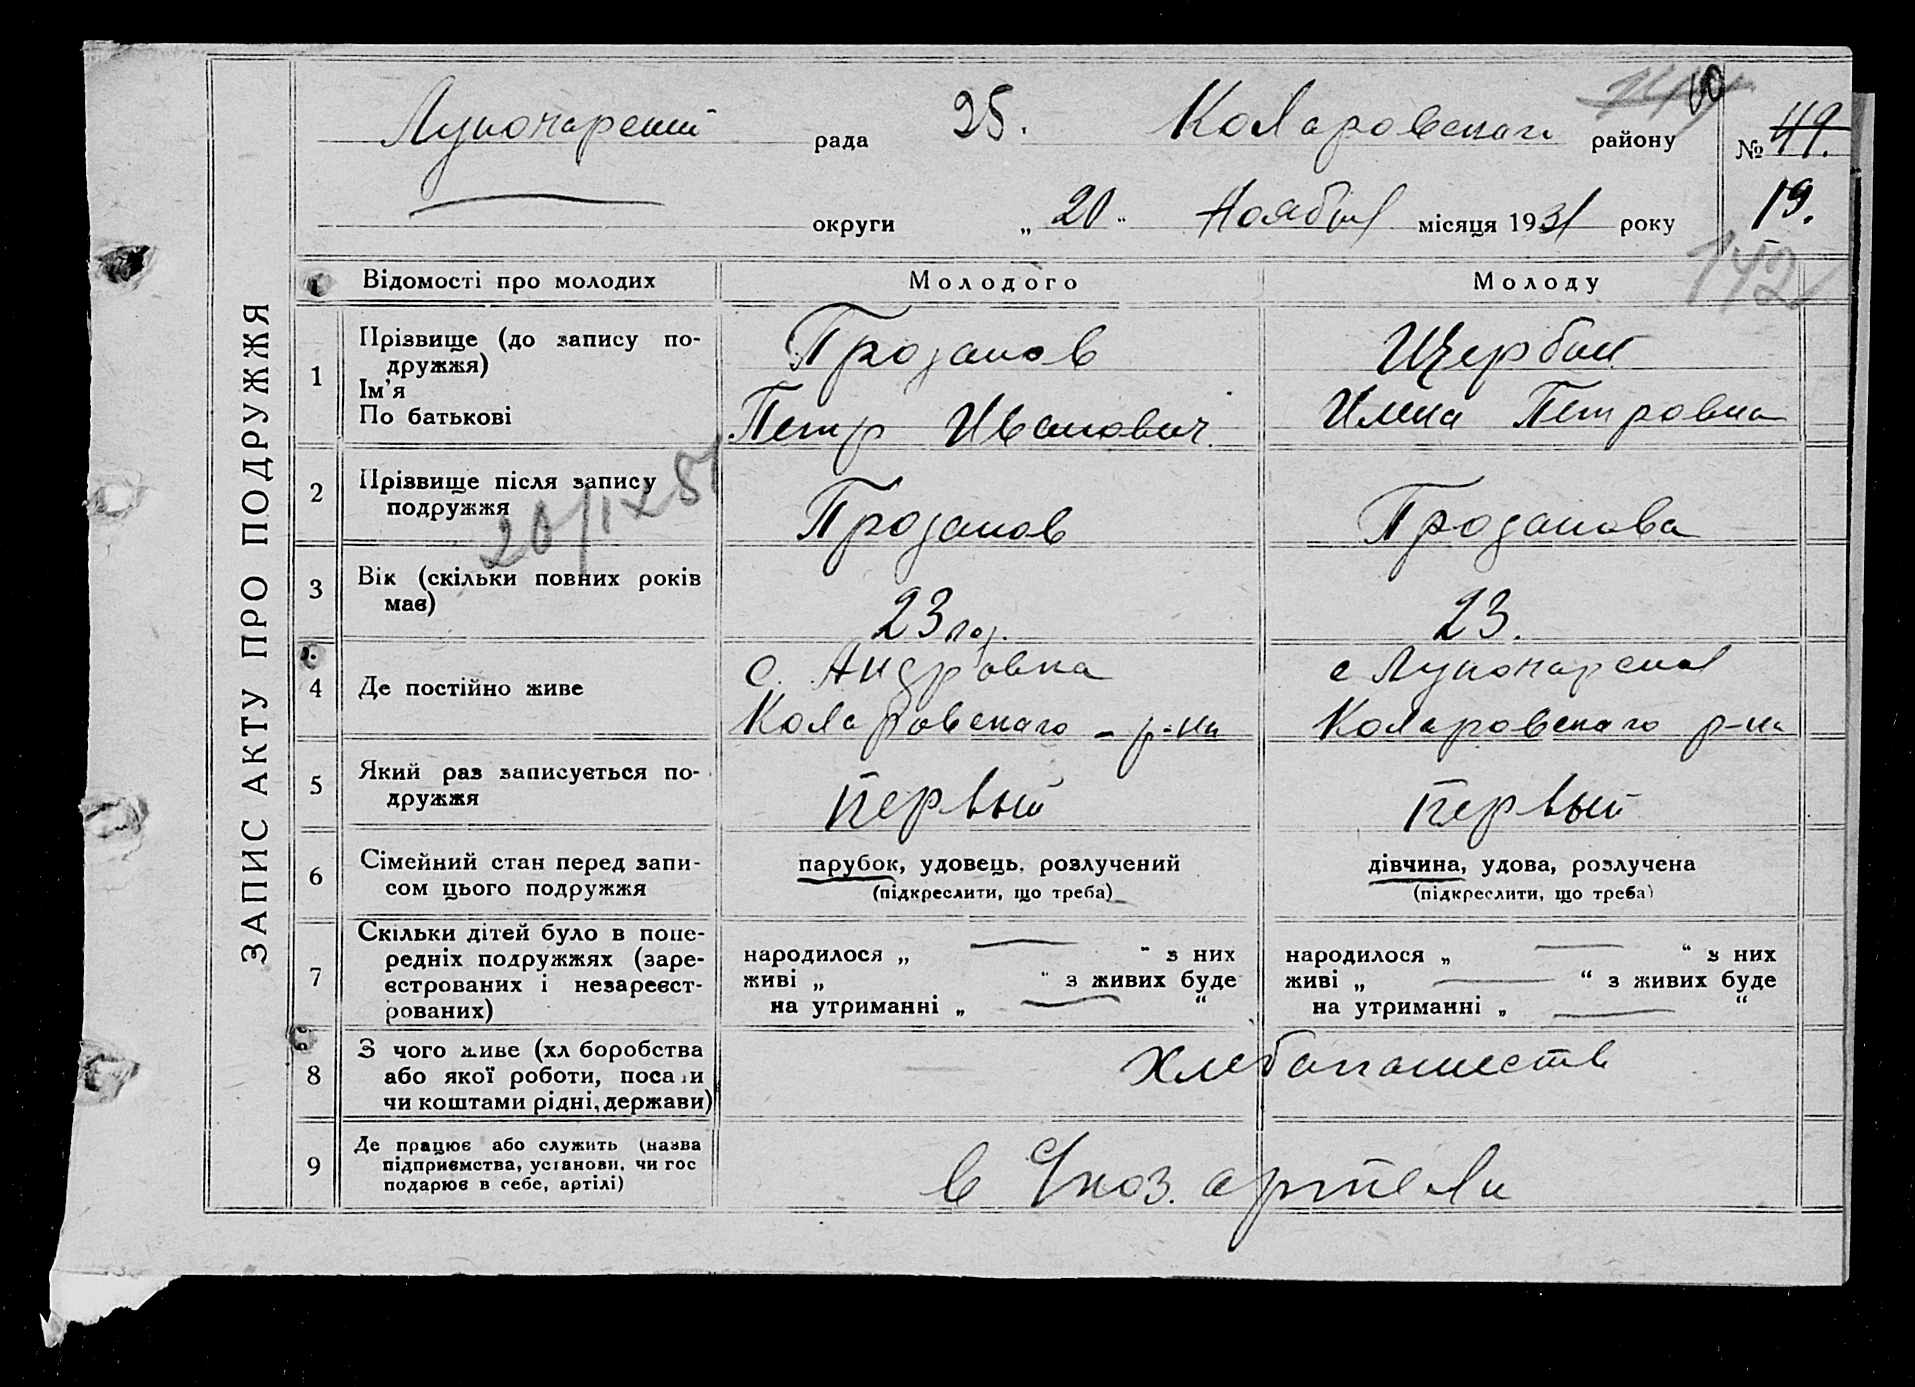 ЗАПИС АКТУ ПРО ПОДРУЖЖЯ
Луночарський рада 25. Коларовскаго району № 49.
округи „20" Ноября місяця 1931 року 19.
142
Відомості про молодих Молодого Молоду
1 Прізвище (до запису по-
дружжя)
Ім'я
По батькові
Проданов
Петр Иванович
Щербан
Илина Петровна
2 Прізвище після запису
подружжя
20/IX 51
Проданов
Проданова
3 Вік (скільки повних років
має)
23 год.
23.
4 Де постійно живе
с. Андровка
Коларовскаго - р-на
с Луночарск
Коларовскаго р-на
5 Який раз записується по-
дружжя
первый
первый
6 Сімейний стан перед запи-
сом цього подружжя
парубок, удовець, розлучений
(підкреслити, що треба)
дівчина, удова, розлучена
(підкреслити, що треба)
7 Скільки дітей було в попе-
редніх подружжях (заре-
єстрованих і незареєст-
рованих)
народилося „ — " з них
живі „ " з живих буде
на утриманні „ — "
народилося „ — " з них
живі „ — " з живих буде
на утриманні „ — "
8 З чого живе (хліборобства
або якої роботи, посади
чи коштами рідні, держави)
хлебопашеств
9 Де працює або служить (назва
підприємства, установи, чи гос
подарює в себе, артілі)
в С/хоз. артели